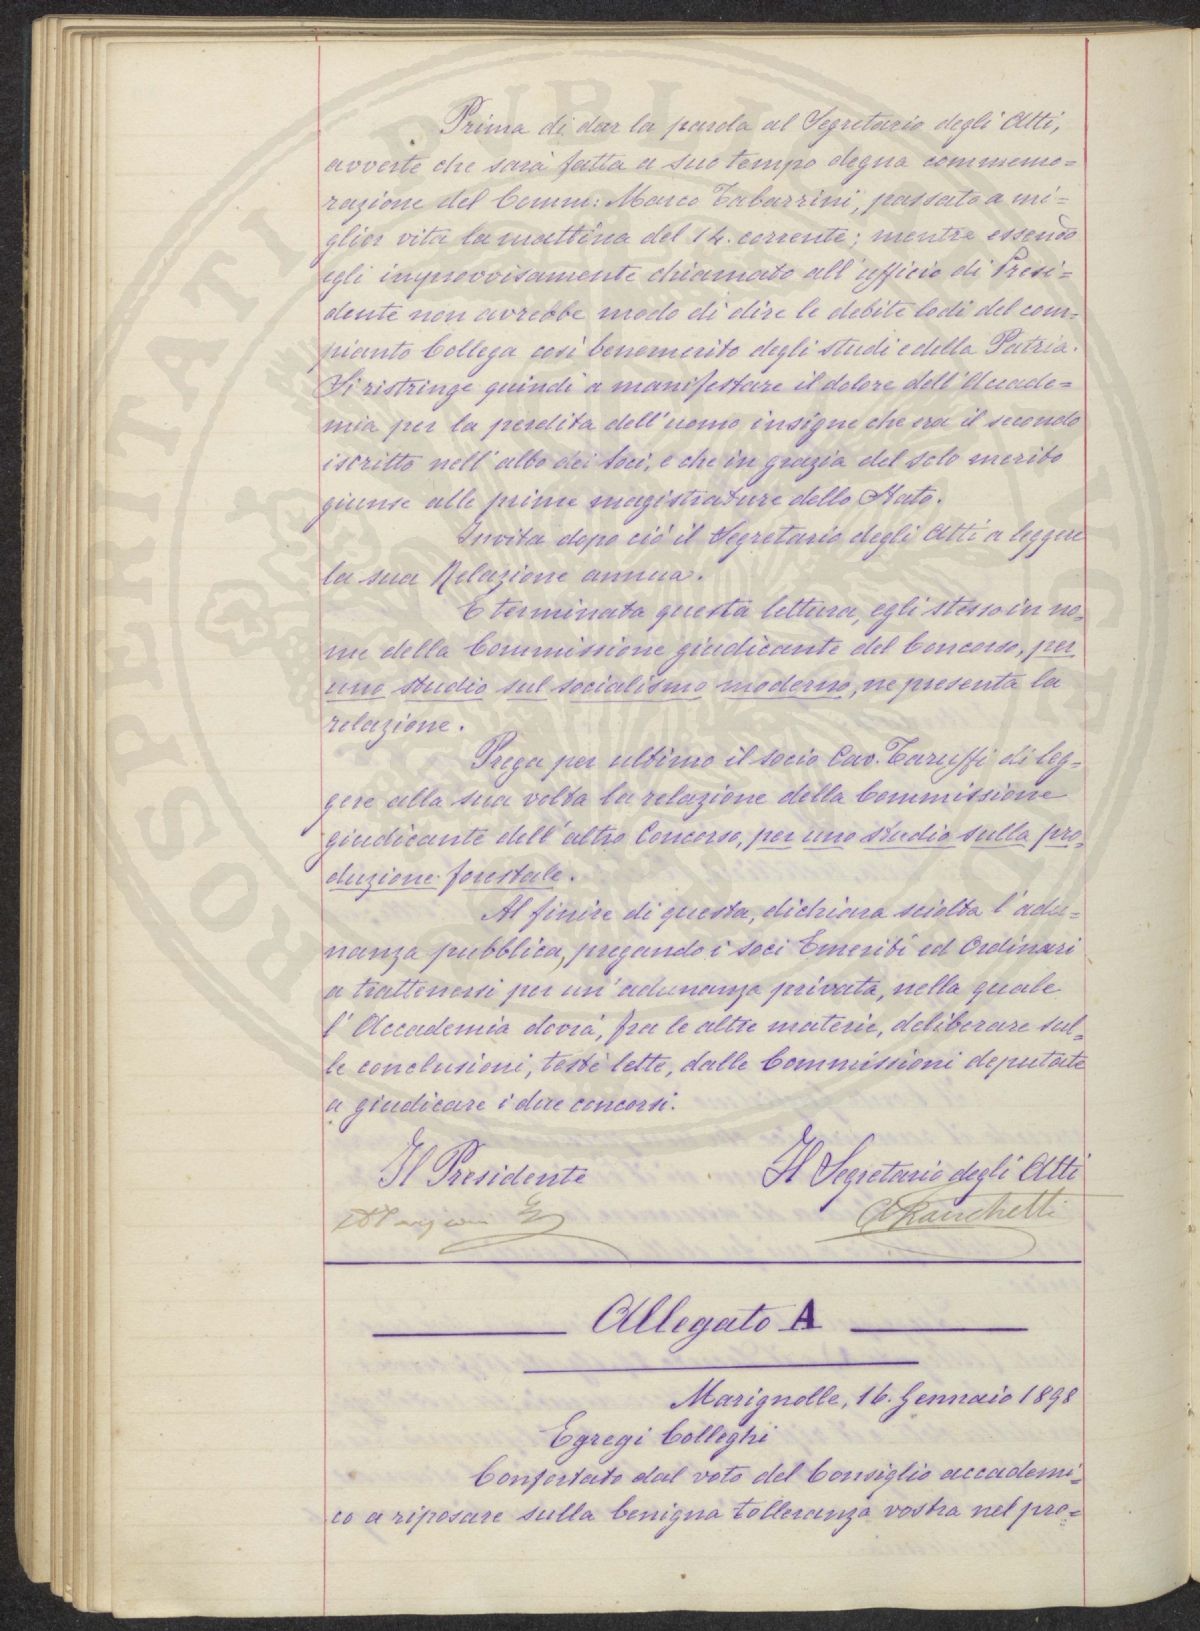 Prima di dar la parola al Segretario degli Atti,
avverte che sarà fatta a suo tempo degna commemo=
razione del Comm: Marco Tabarrini, passato a mi=
glior vita la mattina del 14. corrente; mentre essendo
egli improvvisamente chiamato all'ufficio di Presi=
dente non avrebbe modo di dire le debite lodi del com=
pianto Collega così benemerito degli studi e della Patria.
Si ristringe quindi a manifestare il dolore dell'Accade=
mia per la perdita dell'uomo insigne che era il secondo
iscritto nell'albo dei Soci, e che in grazia del solo merito
giunse alle prime magistrature dello Stato.
Invita dopo ciò il Segretario degli Atti a leggere
la sua Relazione annua.
E terminata questa lettura, egli stesso in no=
me della Commissione giudicante del Concorso, per
uno studio sul socialismo moderno, ne presenta la
relazione.
Prega per ultimo il socio Cav. Taruffi di leg=
gere alla sua volta la relazione della Commissione
giudicante dell'altro Concorso, per uno studio sulla pro=
duzione forestale.
Al finire di questa, dichiara sciolta l'adu=
nanza pubblica, pregando i soci Emeriti ed Ordinari
a trattenersi per un'adunanza privata, nella quale
l'Accademia dovrà, fra le altre materie, deliberare sul=
le conclusioni, testè lette, dalle Commissioni deputate
a giudicare i due concorsi.
Il Presidente
Il Segretario degli Atti
A Franchetti
Allegato A
Marignolle, 16. Gennaio 1898
Egregi Colleghi
Confortato dal voto del Consiglio accademi=
co a riposare sulla benigna tolleranza vostra nel pro=
PROSPERITATI PUBLICAE